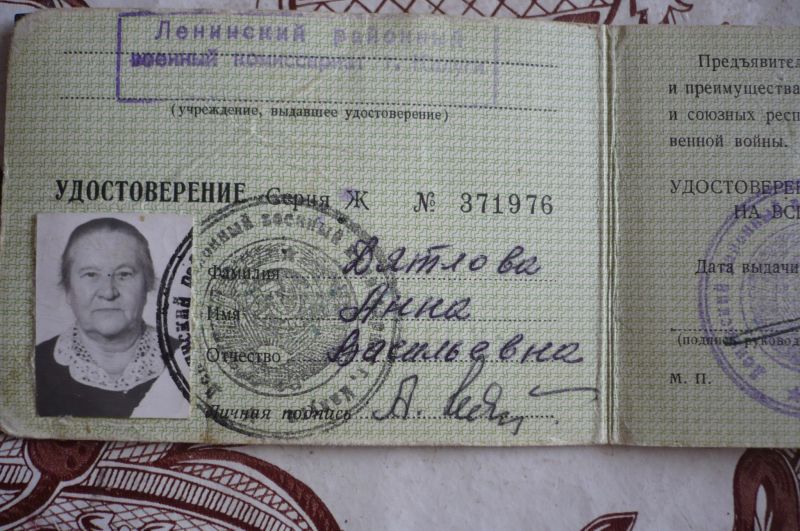 Ленинский районный
военный комиссариат г. Калуги
(учреждение, выдавшее удостоверение)
УДОСТОВЕРЕНИЕ Серия Ж № 371976
Фамилия Дятлова
Имя Анна
Отчество Васильевна
Личная подпись А.
Предъявител
и преимущества
и союзных респ
венной войны.
УДОСТОВЕРЕН
НА ВС
Дата выдачи
(подпись руковод
М. П.